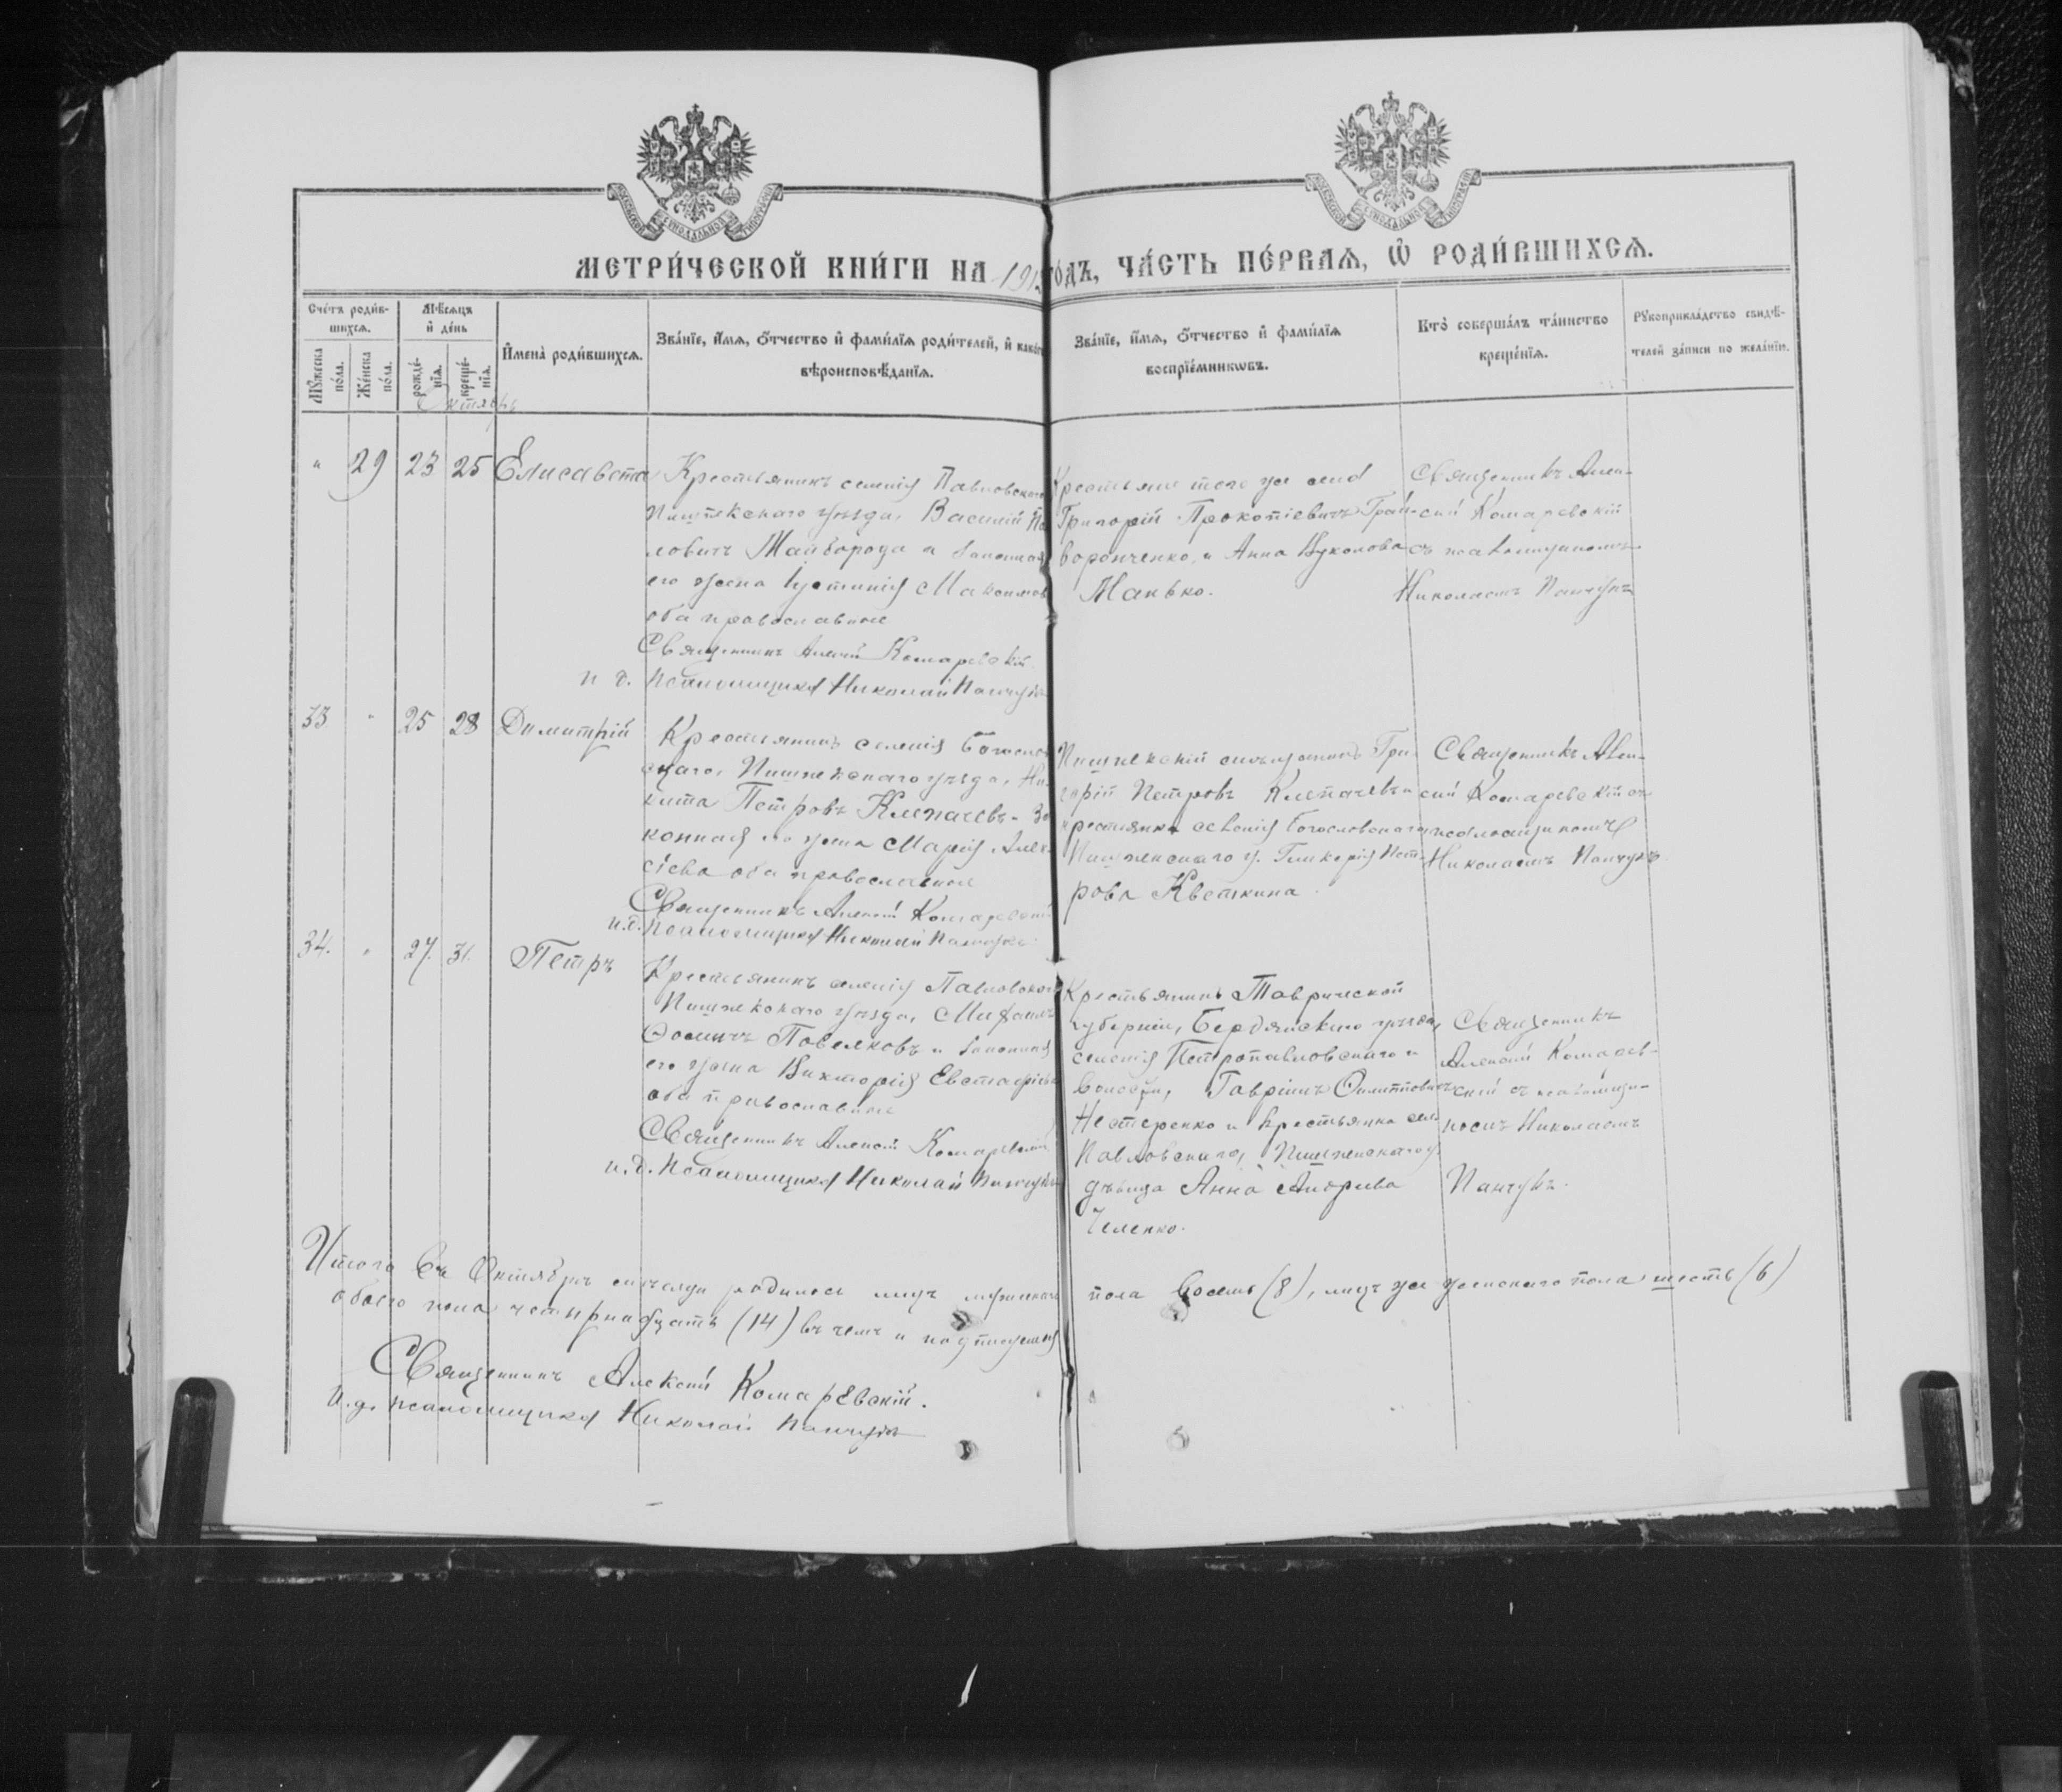 МЕТРИ́ЧЕСКОЙ КНИ́ГИ НА 1912 ГО́ДЪ, ЧА́СТЬ ПЕ́РВАЯ, Ѡ҆ РОДИ́ВШИХСЯ.
Сче́тъ роди́в-
шихся.
Мѣ́сяцъ
и҆ де́нь
Му́жеска
по́ла.
Же́нска
по́ла.
рожде́-
нїя.
креще́-
нїя.
И҆мена̀ роди́вшихся.
Зва́нїе, и҆́мя, ѻ҆́тчество и҆ фами́лїя роди́телей, и҆ како́гѡ
вѣроисповѣ́данїя.
Зва́нїе, и҆́мя, ѻ҆́тчество и҆ фами́лїя
воспрїе́мникѡвъ.
Кто̀ соверша́лъ та́инство
креще́нїя.
Рꙋкоприкла́дство свидѣ́-
телей за́писи по жела́нїю.
Октябрь
" 29 23 25 Елисавета
Крестьянинъ селенія Павловскаго
Пишпекскаго уѣзда, Василій Па
ловичъ Майборода и законная
его жена Іустинія Максимов
оба православные
Священникъ Алексій Комаревскій
и д. Псаломщика Николай Панчукъ
Крестьяне того же села
Григорій Прокопіевичъ Грай-
воронченко, и Анна Вуколова
Манько.
Священникъ Алек-
сий Комаревскій
съ псаломщикомъ
Николаемъ Панчукъ
33 " 25 28 Димитрій
Крестьянинъ селенія Богослов
скаго, Пишпекскаго уѣзда, Ни
кита Петровъ Клепачевъ и За
конная его жена Марія Алек
сіева оба православные
Священникъ Алексій Комаревскій
и.д. Псаломщика Николай Панчукъ
Пишпекскій мѣщанинъ Гри
горій Петровъ Клепачевъ и
крестьянка селенія Богословскаго
Пишпекскаго у. Гликерія Пет-
рова Кветкина.
Священникъ Алек-
сий Комаревскій съ
псаломщикомъ
Николаемъ Панчукъ
34. " 27. 31. Петръ
Крестьянинъ селенія Павловскаго
Пишпекскаго уѣзда, Михаилъ
Ѳомичъ Повелковъ и законная
его жена Викторія Евстафіева
оба православные
Священникъ Алексій Комаревскій
и.д. Псаломщика Николай Панчукъ
Крестьянинъ Таврической
губерніи, Бердянскаго уѣзда,
селенія Петропавловскаго и
волости, Гавріилъ
Нестеренко и крестьянка села
Павловскаго, Пишпекскаго у.
дѣвица Анна Андреева
Челенко.
Священникъ
Алексій Комарев-
скій съ псаломщи-
комъ Николаемъ
Панчукъ.
Итого въ Октябрѣ мѣсяцѣ родилось лицъ мужескаго пола восемь (8), лицъ же женскаго пола шесть (6)
обоего пола четырнадцать (14) въ чемъ и подписуемся
Священникъ Алексій Комаревскій.
И.д. псаломщика Николай Панчукъ